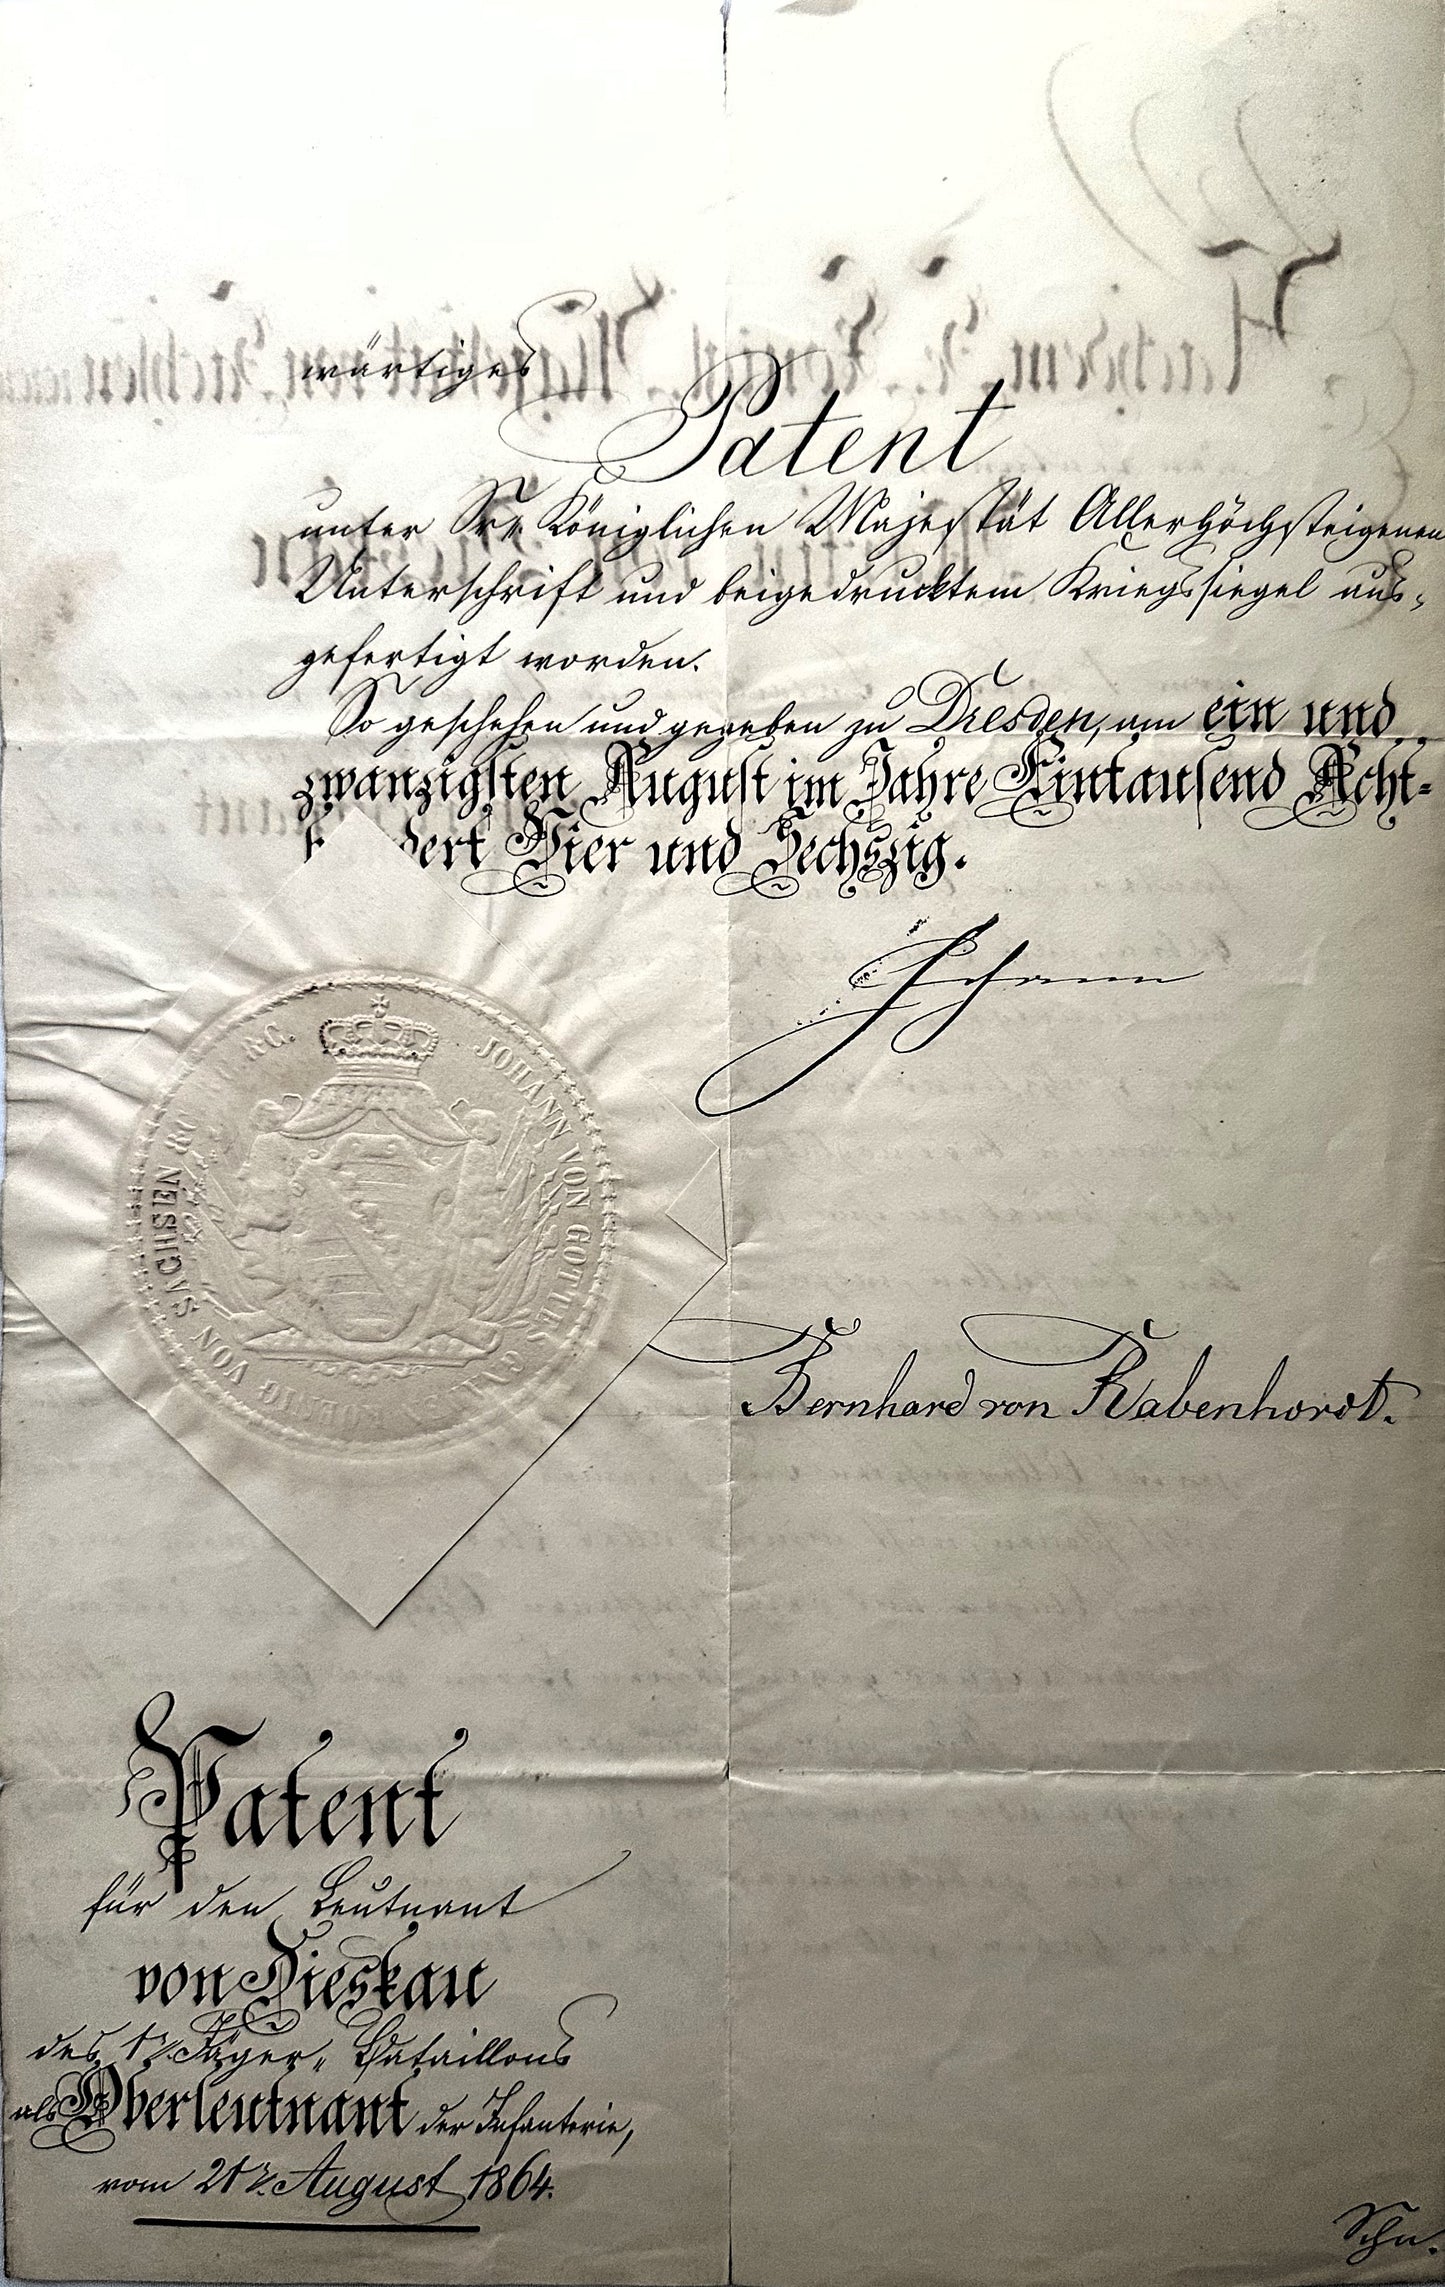 wärtiges
Patent
unter Sr. Königlichen Majestät Allerhöchsteigenen
Unterschrift und beigedrucktem Kriegssiegel aus-
gefertigt worden.
So geschehen und gegeben zu Dresden, am ein und
zwanzigsten August im Jahre Eintausend Acht-
dert Vier und Sechszig.
Johann
JOHANN VON GOTTES GN. KOENIG VON SACHSEN &C. &C.
Bernhard von Rabenhorst.
Patent
für den Leutnant
von Dieskau
des 1r. Jäger-Bataillons
als Oberleutnant der Infanterie,
vom 21r. August 1864.
Schu.